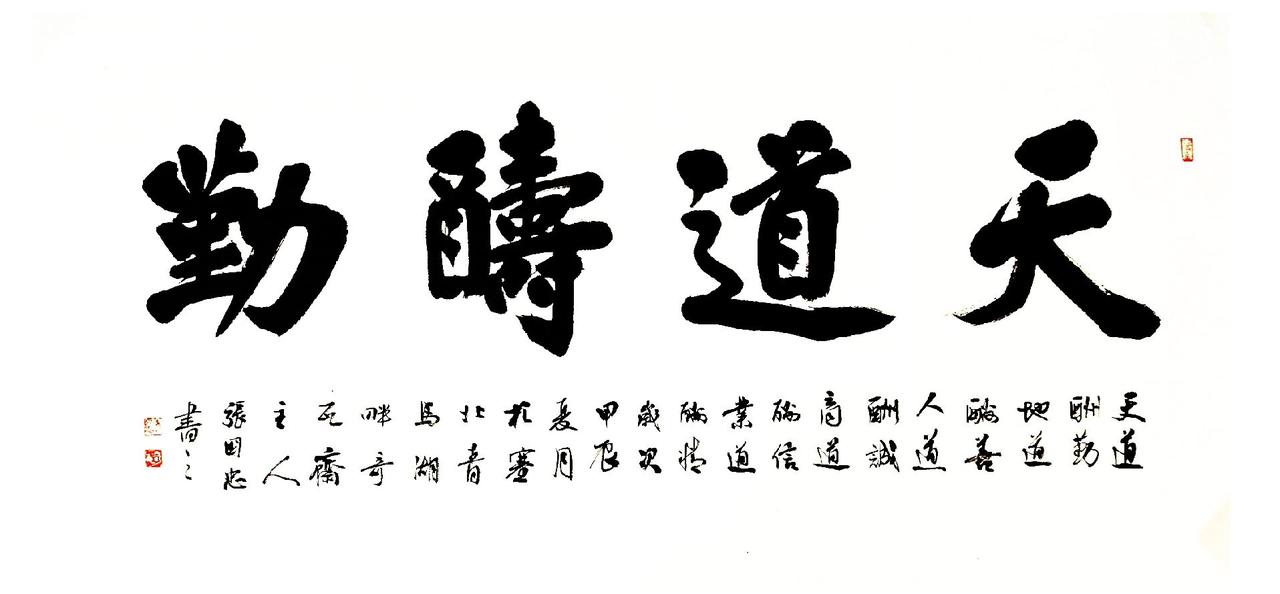 天道酬勤
天道
酬勤
地道
酬善
人道
酬誠
商道
酬信
業道
酬精
歲次
甲辰
夏月
於塞
北青
馬湖
畔奇
石齋
主人
張國忠
書之